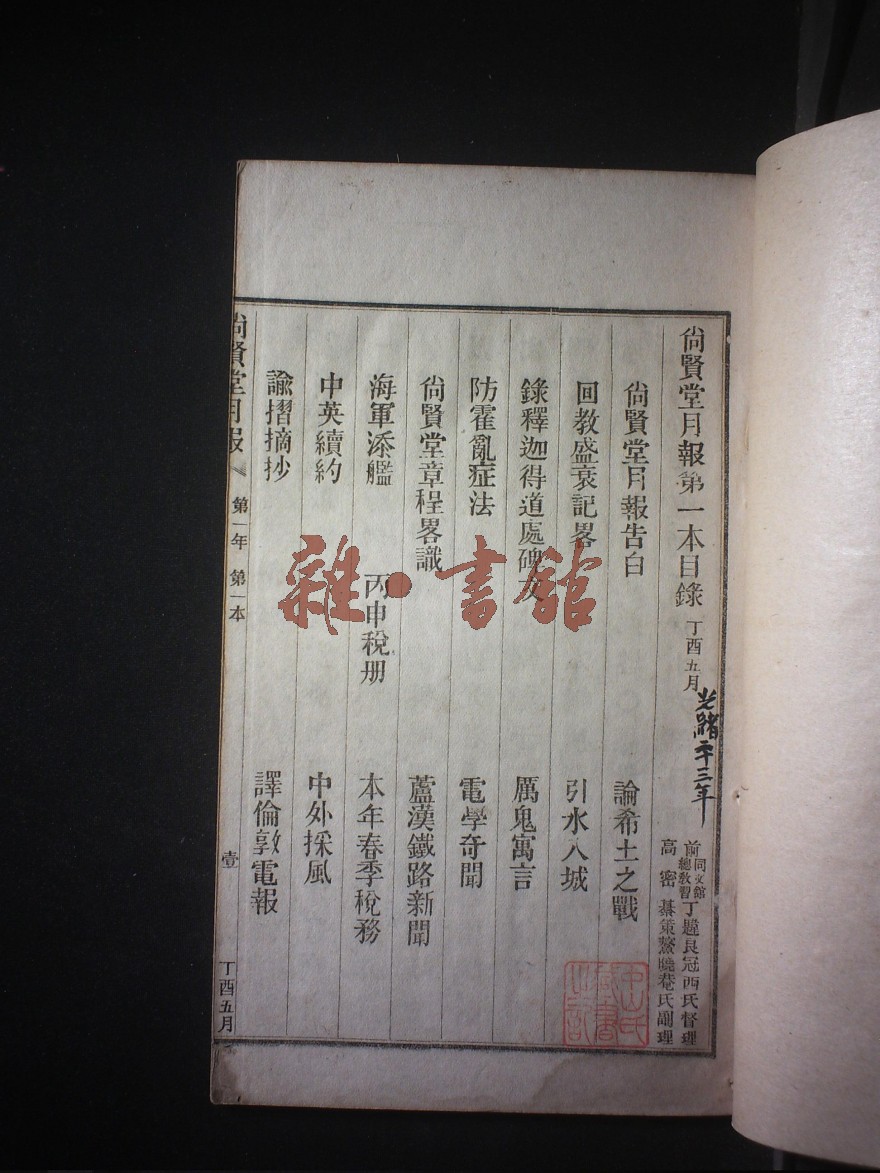 尙賢堂月報第一本目錄 丁酉五月
光緒二十三年
前同文館總敎習丁韙良冠西氏督理
高密綦策鰲曉菴氏副理
尙賢堂月報告白
論希土之戰
回教盛衰記畧
引水入城
錄釋迦得道處碑文
厲鬼寓言
防霍亂症法
電學奇聞
尙賢堂章程畧識
蘆漢鐵路新聞
海軍添艦
丙申稅册
本年春季稅務
中英續約
中外採風
諭摺摘抄
譯倫敦電報
尙賢堂月報 第一年 第一本 壹 丁酉五月
雜·書館